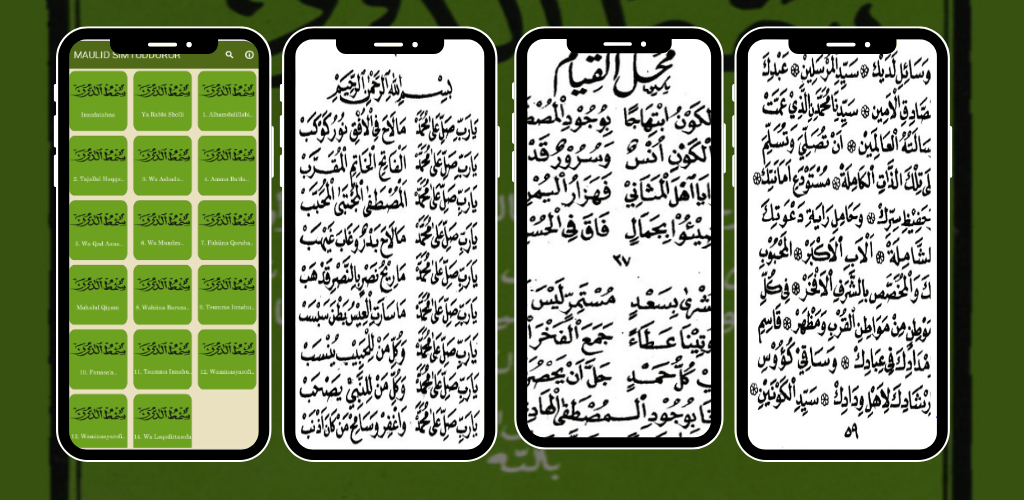 MAULID SIMTUDDUROR
سِمْطُ الدُّرَرْ
Ya Rabbi Sholli
1. Alhamdulillahi..
2. Tajallal Haqqu..
3. Wa Ashadu..
4. Amma Ba'du..
6. Wa Mundzu..
7. Fahiina Qaruba..
Mahalul Qiyam
8. Wahiina Baroza..
9. Tsumma Innahu..
10. Fanasa'a..
11. Tsumma Innahu..
12. Waminasyarofi..
13. Waminasyarofi..
بِسْمِ اللهِ الرَّحْمٰنِ الرَّحِيْمِ
يَارَبِّ صَلِّ عَلَى مُحَمَّدْ مَا لَاحَ فِي الْأُفْقِ نُوْرُ كَوْكَبْ
يَارَبِّ صَلِّ عَلَى مُحَمَّدْ الْفَاتِحِ الْخَاتِمِ الْمُقَرَّبْ
يَارَبِّ صَلِّ عَلَى مُحَمَّدْ الْمُصْطَفَى الْمُجْتَبَى الْمُحَبَّبْ
يَارَبِّ صَلِّ عَلَى مُحَمَّدْ مَا لَاحَ بَدْرٌ وَغَابَ غَيْهَبْ
يَارَبِّ صَلِّ عَلَى مُحَمَّدْ مَا رِيْحُ نَصْرٍ بِالنَّصْرِ قَدْ هَبْ
يَارَبِّ صَلِّ عَلَى مُحَمَّدْ مَا سَارَتِ الْعِيْسُ بَطْنَ سَبْسَبْ
يَارَبِّ صَلِّ عَلَى مُحَمَّدْ وَكُلِّ مَنْ لِلْحَبِيْبِ يُنْسَبْ
يَارَبِّ صَلِّ عَلَى مُحَمَّدْ وَكُلِّ مَنْ لِلنَّبِيِّ يَصْحَبْ
يَارَبِّ صَلِّ عَلَى مُحَمَّدْ وَاغْفِرْ وَسَامِحْ مَنْ كَانَ أَذْنَبْ
مَحَلُّ الْقِيَامِ
الْكَوْنُ ابْتِهَاجًا بِوُجُوْدِ الْمُصْطَ
الْكَوْنِ أُنْسٌ وَسُرُوْرٌ قَدْ
يَا أَهْلَ الْمَثَانِيْ فَهَزَارُ الْيُمْنِ
ضِيْئُوْا بِجَمَالٍ فَاقَ فِي الْحُسْ
٢٧
بُشْرَى بِسَعْدٍ مُسْتَمِرٍّ لَيْسَ
أُوْتِيْنَا عَطَاءً جَمَعَ الْفَخْرَ
ي كُلُّ حَمْدٍ جَلَّ أَنْ يَحْصُرَ
نَا بِوُجُوْدِ الْمُصْطَفَى الْهَادِي
وَسَائِلِ لَدَيْكَ ۞ سَيِّدِ الْمُرْسَلِيْنَ ۞ عَبْدِكَ
صَّادِقِ الْأَمِيْنِ ۞ سَيِّدِنَا مُحَمَّدٍ الَّذِي عَمَّتْ
سَالَتُهُ الْعَالَمِيْنَ ۞ أَنْ تُصَلِّيَ وَتُسَلِّمَ
لَى تِلْكَ الذَّاتِ الْكَامِلَةِ ۞ مُسْتَوْدَعِ أَمَانَتِكَ ۞
حَفِيْظِ سِرِّكَ ۞ وَحَامِلِ رَايَةِ دَعْوَتِكَ
لشَّامِلَةِ ۞ الْأَبِ الْأَكْبَرِ ۞ الْمَحْبُوْبِ
كَ وَالْمُخَصَّصِ بِالشَّرَفِ الْأَفْخَرِ ۞ فِي كُلِّ
مَوْطِنٍ مِنْ مَوَاطِنِ الْقُرْبِ وَمَظْهَرٍ ۞ قَاسِمِ
مْدَادِكَ فِي عِبَادِكَ ۞ وَسَاقِي كُؤُوْسِ
رْشَادِكَ لِأَهْلِ وِدَادِكَ ۞ سَيِّدِ الْكَوْنَيْنِ ۞
٥٩